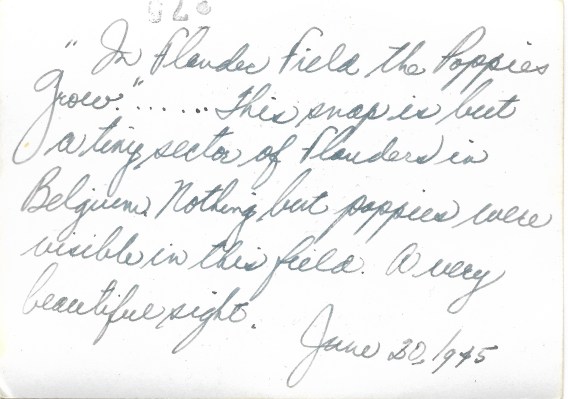 "In Flander Field the Poppies
Grow." ...... This snap is but
a tiny sector of Flanders in
Belgium. Nothing but poppies were
visible in this field. A very
beautiful sight.
June 20, 1945